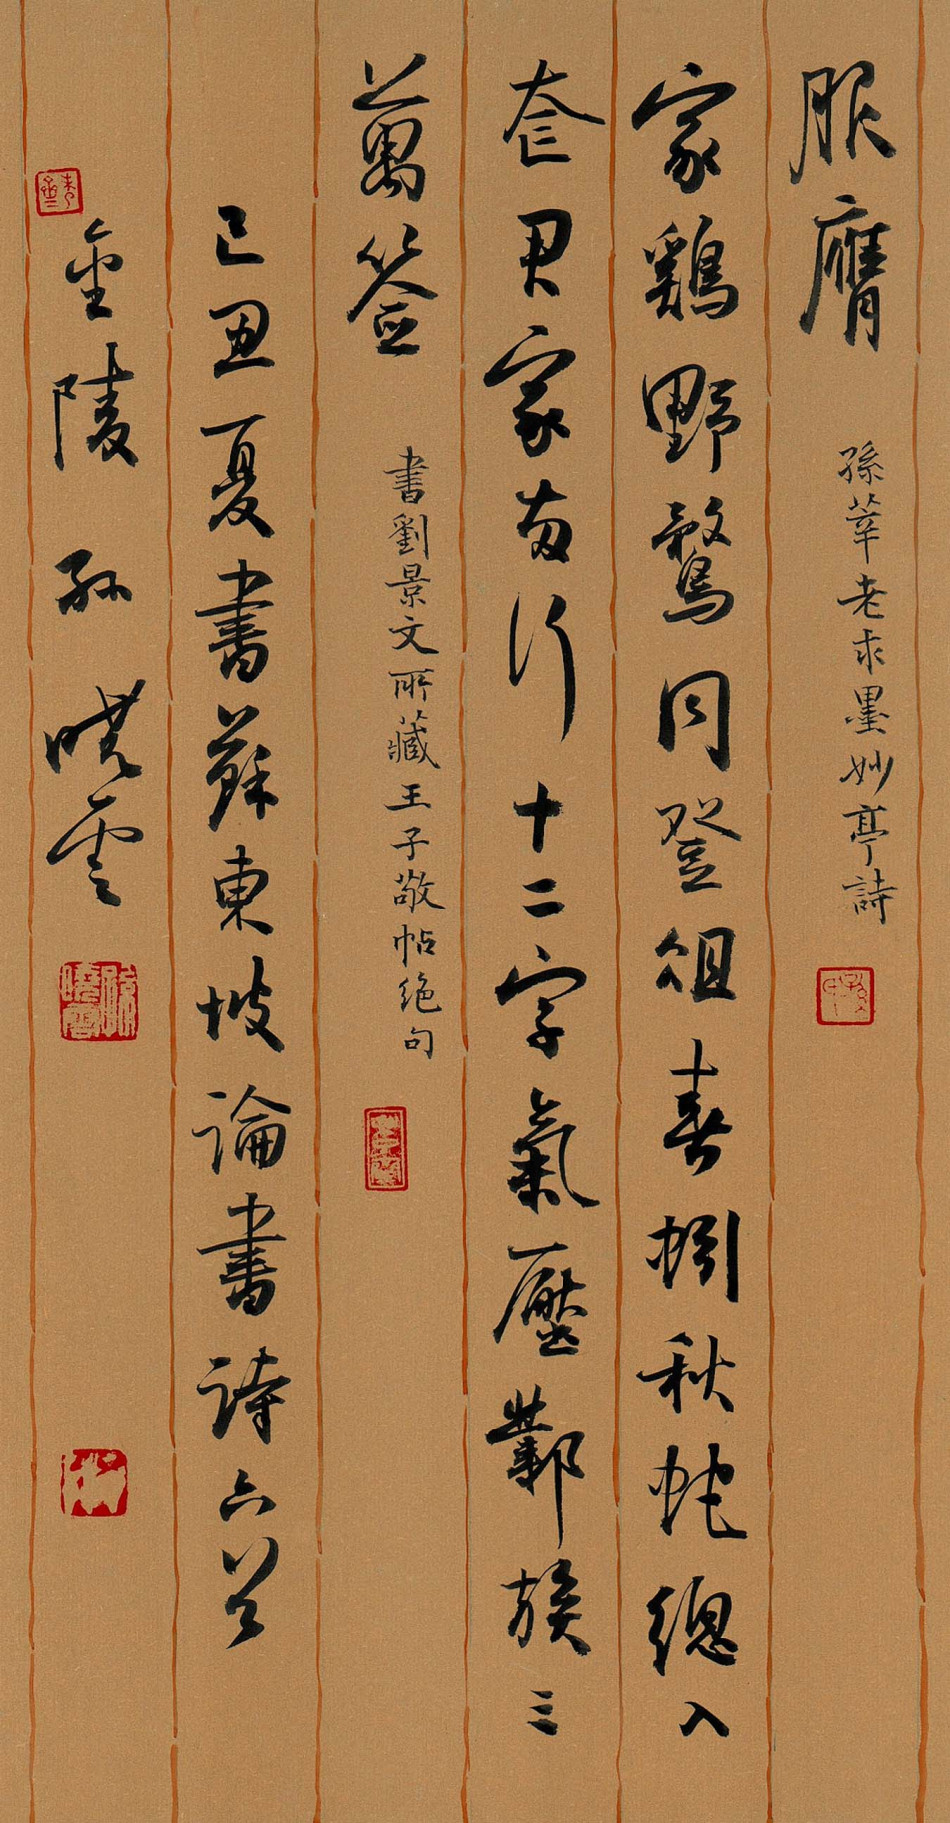 服膺
孫莘老求墨妙亭詩
家鷄野鶩同登俎春蚓秋蛇總入
奁君家两行十二字氣壓鄴侯三
萬签
書劉景文所藏王子敬帖絕句
己丑夏書蘇東坡論書詩六首
金陵孫曉雲